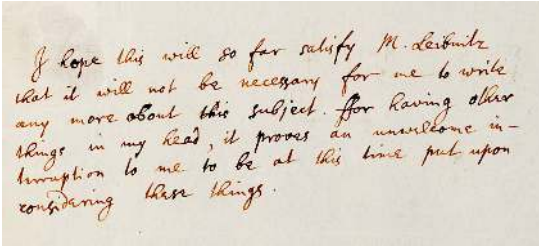 I hope this will so far satisfy M. Leibnitz
that it will not be necessary for me to write
any more about this subject. ffor having other
things in my head, it proves an unwelcome in-
terruption to me to be at this time put upon
considering these things.